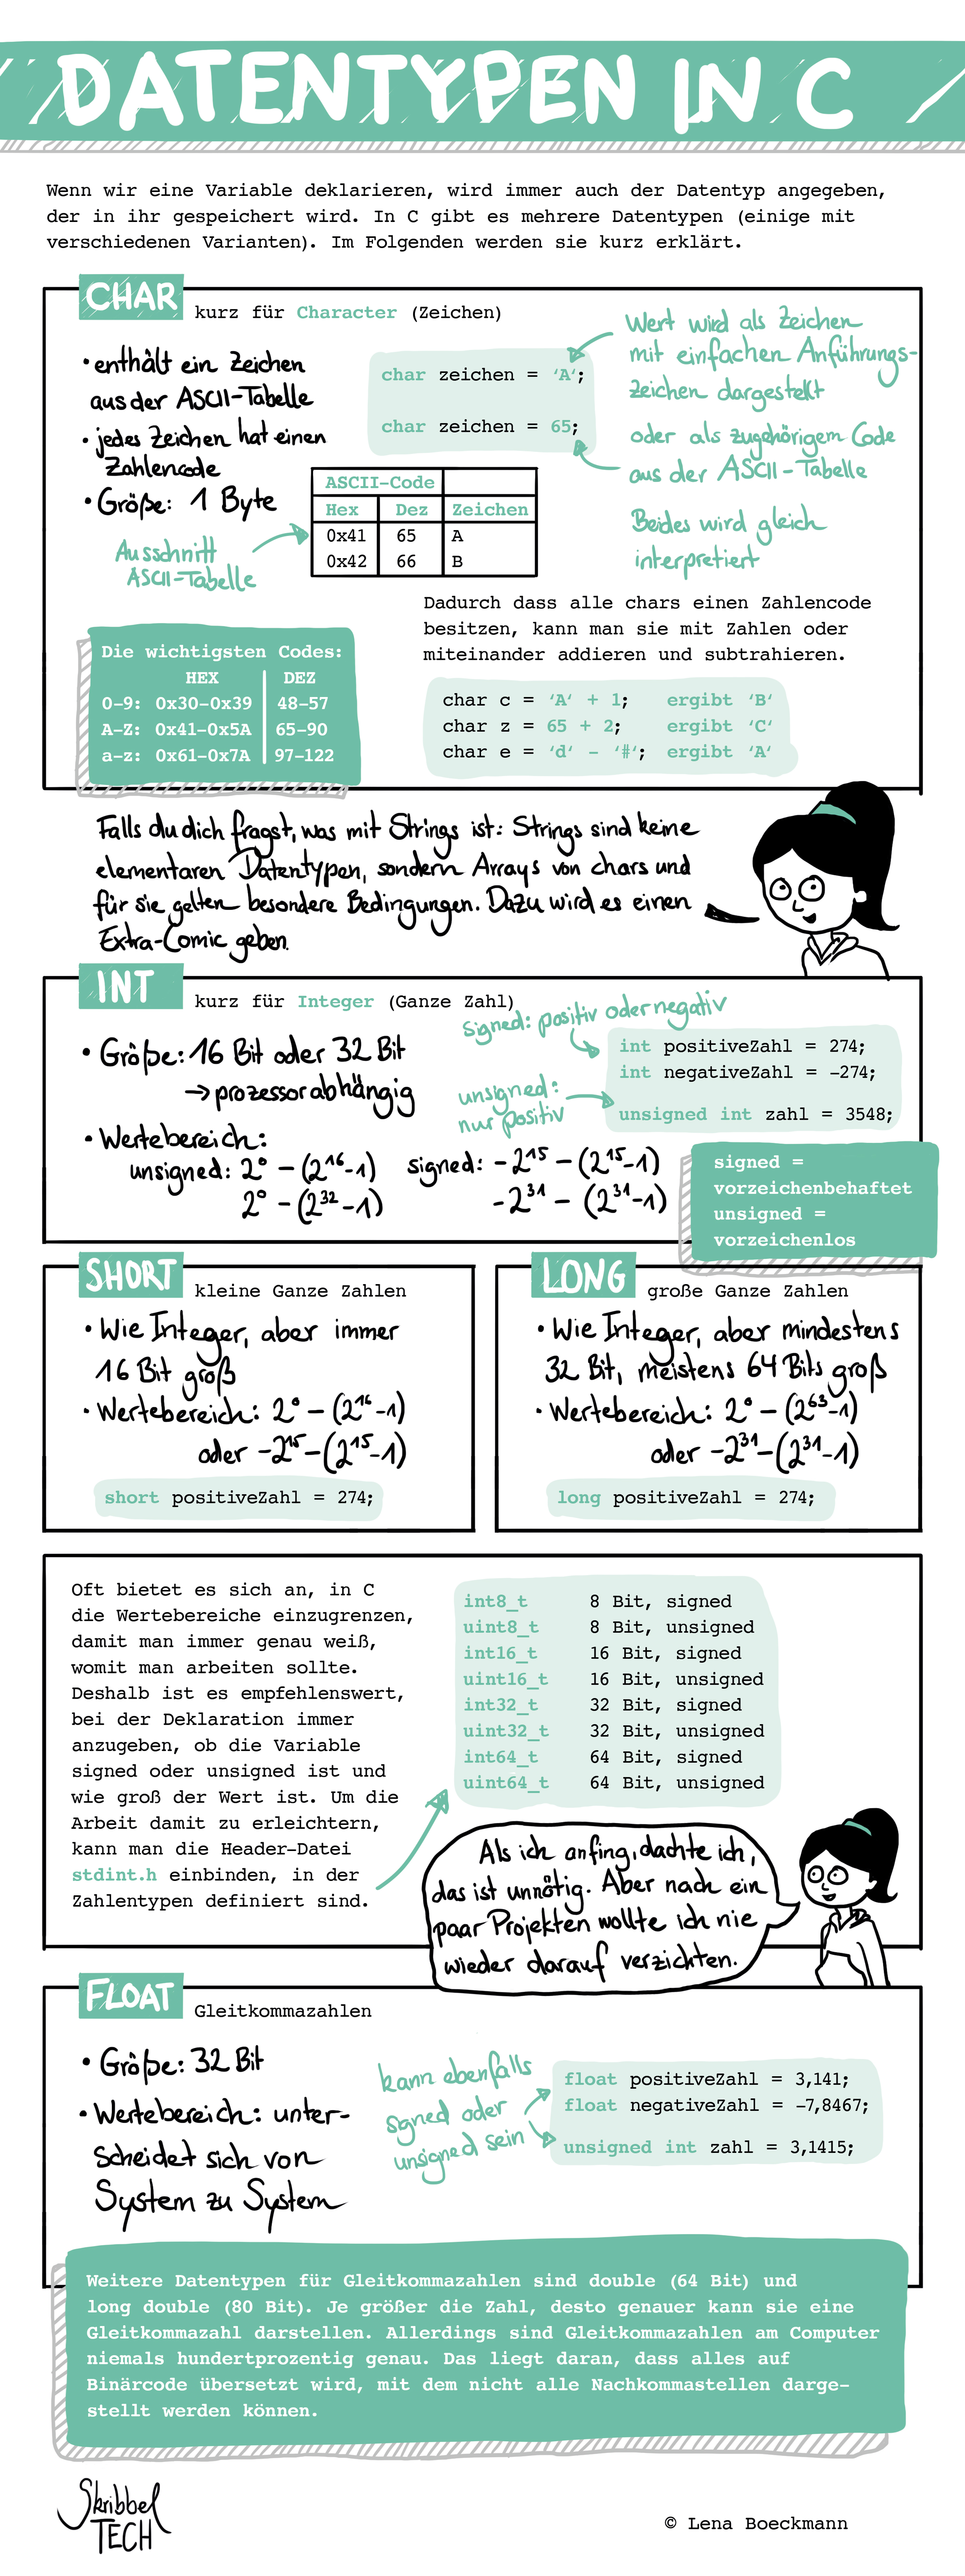 DATENTYPEN IN C
Wenn wir eine Variable deklarieren, wird immer auch der Datentyp angegeben,
der in ihr gespeichert wird. In C gibt es mehrere Datentypen (einige mit
verschiedenen Varianten). Im Folgenden werden sie kurz erklärt.
CHAR
kurz für Character (Zeichen)
• enthält ein Zeichen
aus der ASCII-Tabelle
• jedes Zeichen hat einen
Zahlencode
• Größe: 1 Byte
char zeichen = ‘A‘;
char zeichen = 65;
Wert wird als Zeichen
mit einfachen Anführungs-
zeichen dargestellt
oder als zugehörigem Code
aus der ASCII-Tabelle
Beides wird gleich
interpretiert
Ausschnitt
ASCII-Tabelle
ASCII-Code
Hex Dez Zeichen
0x41 65 A
0x42 66 B
Dadurch dass alle chars einen Zahlencode
besitzen, kann man sie mit Zahlen oder
miteinander addieren und subtrahieren.
Die wichtigsten Codes:
HEX DEZ
0-9: 0x30-0x39 48-57
A-Z: 0x41-0x5A 65-90
a-z: 0x61-0x7A 97-122
char c = ‘A‘ + 1; ergibt ‘B‘
char z = 65 + 2; ergibt ‘C‘
char e = ‘d‘ - ‘#‘; ergibt ‘A‘
Falls du dich fragst, was mit Strings ist: Strings sind keine
elementaren Datentypen, sondern Arrays von chars und
für sie gelten besondere Bedingungen. Dazu wird es einen
Extra-Comic geben.
INT
kurz für Integer (Ganze Zahl)
• Größe: 16 Bit oder 32 Bit
→ prozessorabhängig
• Wertebereich:
unsigned: 2⁰ – (2¹⁶-1)
2⁰ – (2³²-1)
signed: -2¹⁵ – (2¹⁵-1)
-2³¹ – (2³¹-1)
signed: positiv oder negativ
unsigned:
nur positiv
int positiveZahl = 274;
int negativeZahl = -274;
unsigned int zahl = 3548;
signed =
vorzeichenbehaftet
unsigned =
vorzeichenlos
SHORT
kleine Ganze Zahlen
• Wie Integer, aber immer
16 Bit groß
• Wertebereich: 2⁰ – (2¹⁶-1)
oder -2¹⁵ – (2¹⁵-1)
short positiveZahl = 274;
LONG
große Ganze Zahlen
• Wie Integer, aber mindestens
32 Bit, meistens 64 Bits groß
• Wertebereich: 2⁰ – (2⁶³-1)
oder -2³¹ – (2³¹-1)
long positiveZahl = 274;
Oft bietet es sich an, in C
die Wertebereiche einzugrenzen,
damit man immer genau weiß,
womit man arbeiten sollte.
Deshalb ist es empfehlenswert,
bei der Deklaration immer
anzugeben, ob die Variable
signed oder unsigned ist und
wie groß der Wert ist. Um die
Arbeit damit zu erleichtern,
kann man die Header-Datei
stdint.h einbinden, in der
Zahlentypen definiert sind.
int8_t 8 Bit, signed
uint8_t 8 Bit, unsigned
int16_t 16 Bit, signed
uint16_t 16 Bit, unsigned
int32_t 32 Bit, signed
uint32_t 32 Bit, unsigned
int64_t 64 Bit, signed
uint64_t 64 Bit, unsigned
Als ich anfing, dachte ich,
das ist unnötig. Aber nach ein
paar Projekten wollte ich nie
wieder darauf verzichten.
FLOAT
Gleitkommazahlen
• Größe: 32 Bit
• Wertebereich: unter-
scheidet sich von
System zu System
kann ebenfalls
signed oder
unsigned sein
float positiveZahl = 3,141;
float negativeZahl = -7,8467;
unsigned int zahl = 3,1415;
Weitere Datentypen für Gleitkommazahlen sind double (64 Bit) und
long double (80 Bit). Je größer die Zahl, desto genauer kann sie eine
Gleitkommazahl darstellen. Allerdings sind Gleitkommazahlen am Computer
niemals hundertprozentig genau. Das liegt daran, dass alles auf
Binärcode übersetzt wird, mit dem nicht alle Nachkommastellen darge-
stellt werden können.
Skribbel
TECH
© Lena Boeckmann